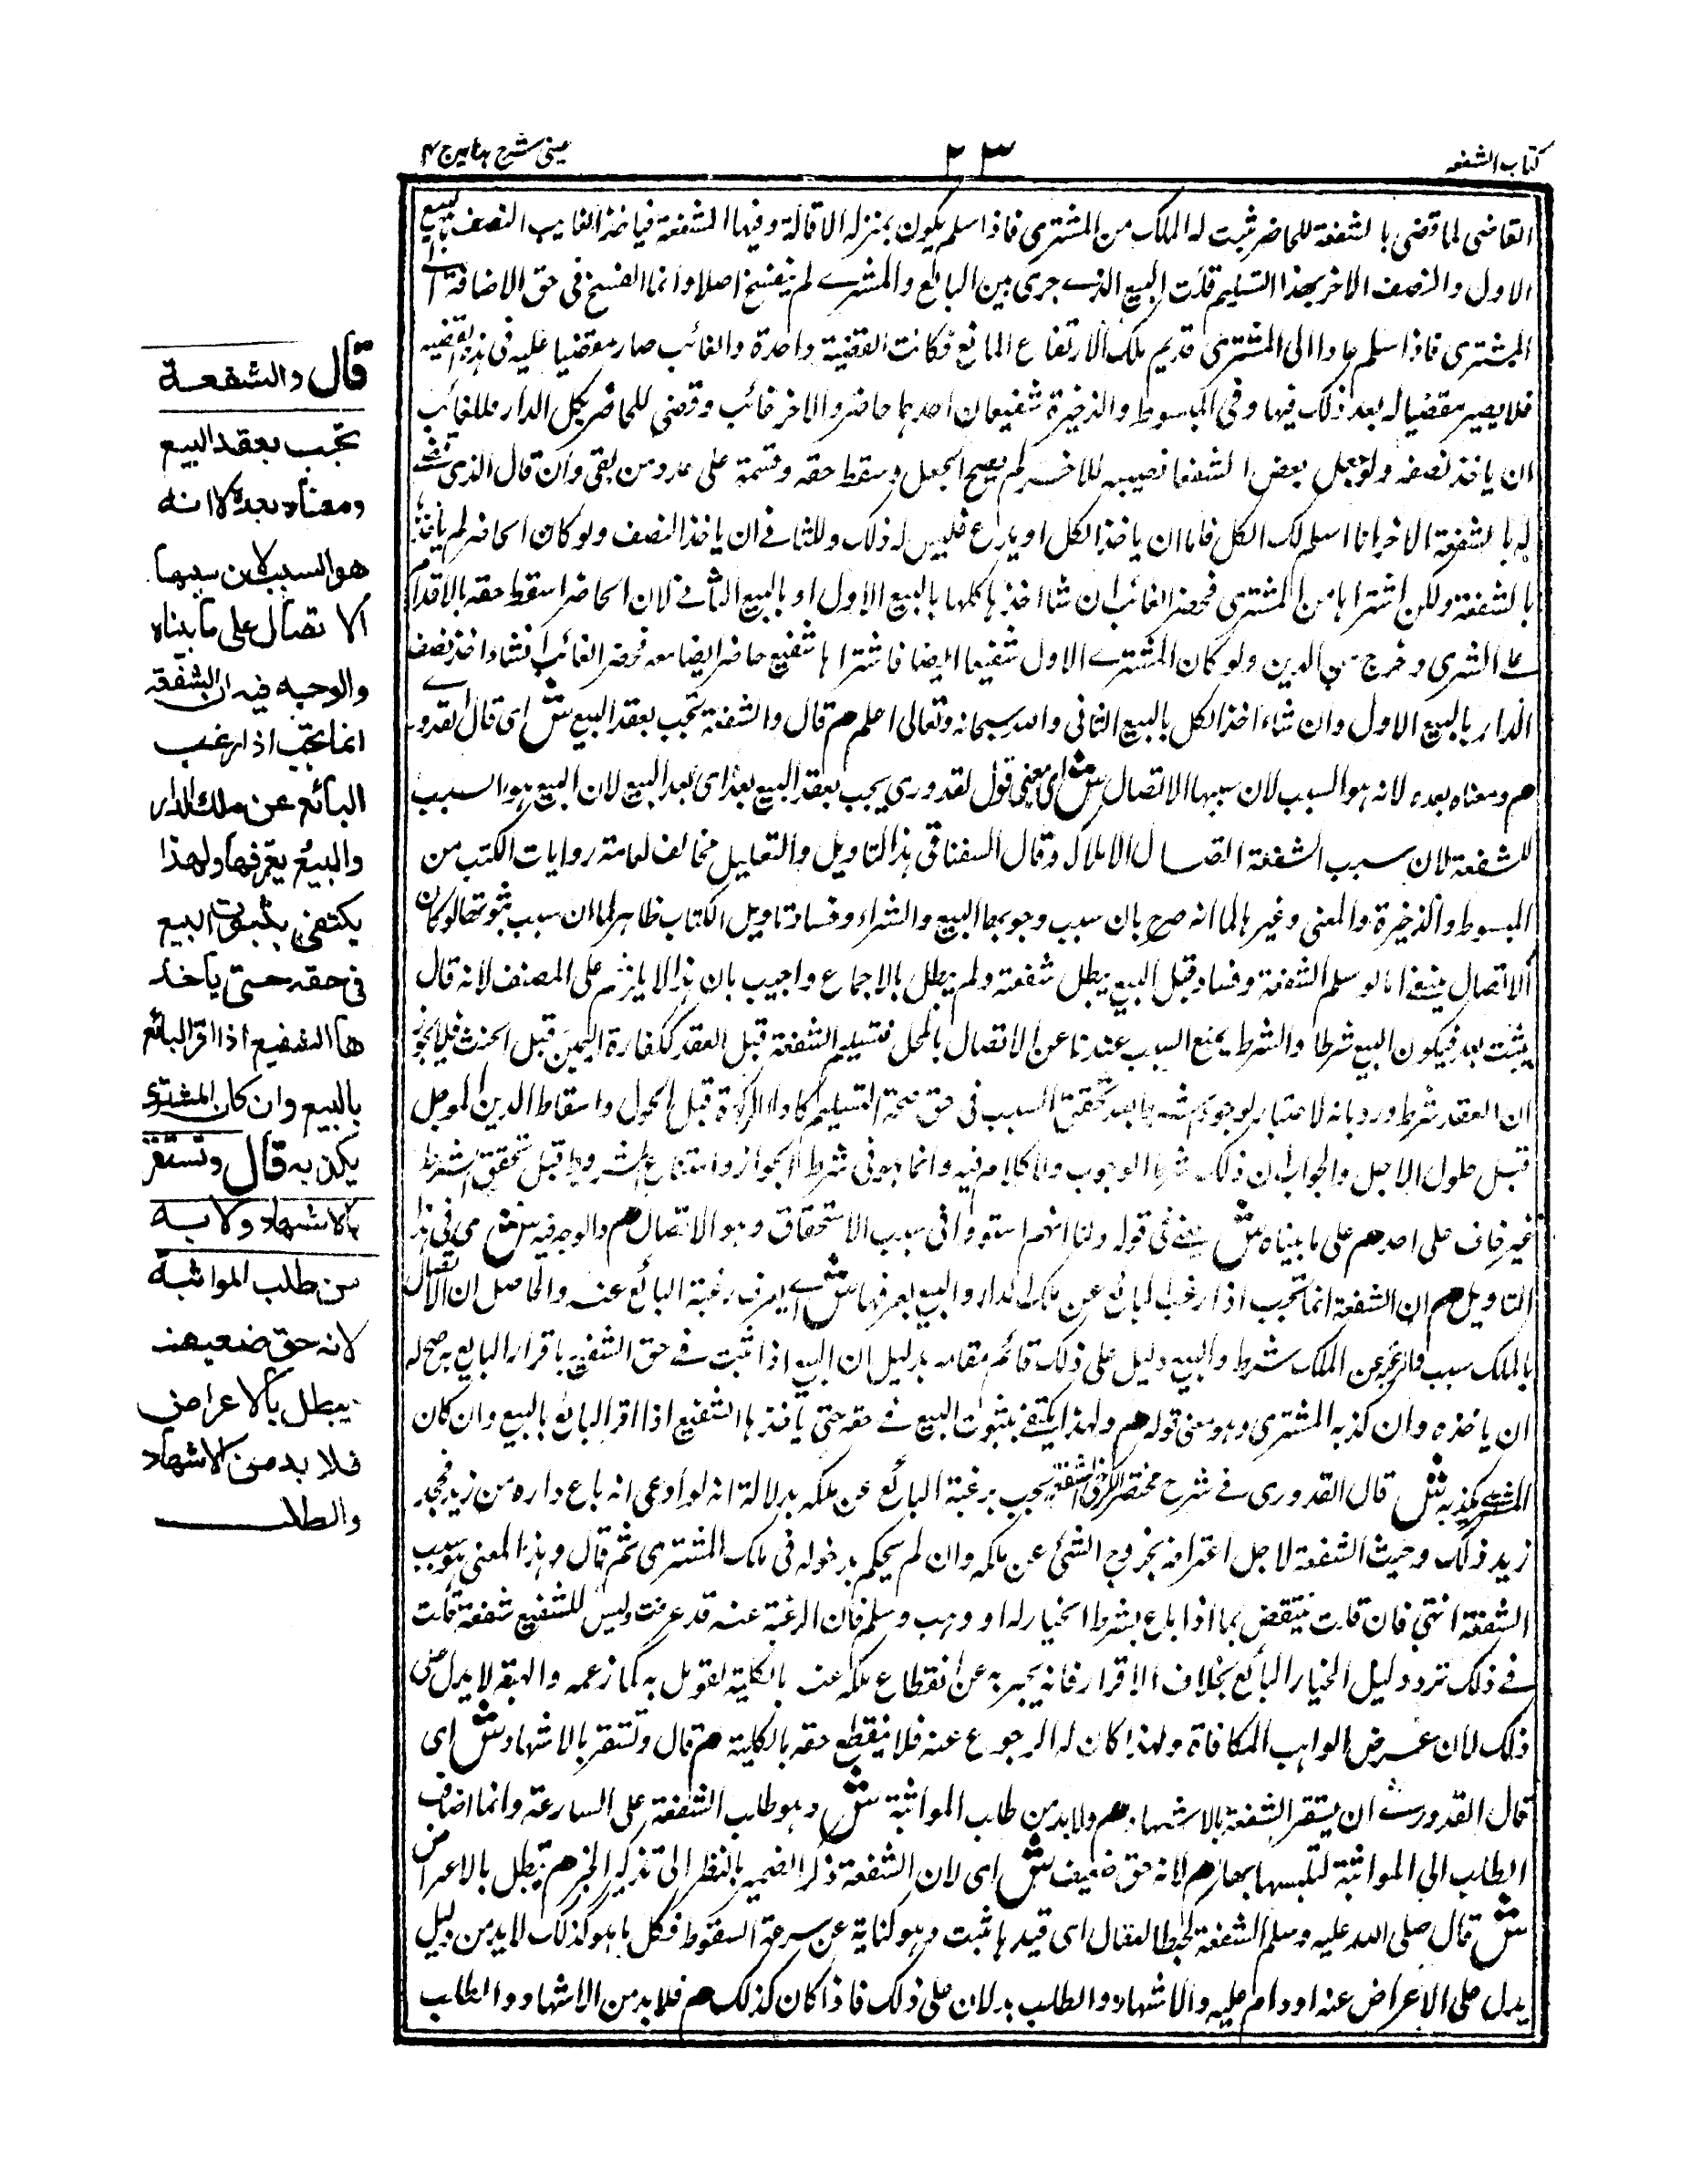 كتاب الشفعه
٢٣
عینی شرح هدایه ج ۴
القاضى لما قضى بالشفعة للحاضر ثبت له الملك من المشترى فاذا سلم يكون بمنزلة الاقالة وفيها الشفعة فياخذ الغايب النصف بالبيع
الاول والنصف الاخر بهذا التسليم قلت البيع الذے جرى بين البائع والمشترے لم ينفسخ اصلا وانما انفسخ فى حق الاضافة الے
المشترى فاذا سلم عاد الى المشترى قديم ملك لارتفاع المانع فكانت القضية واحدة والغائب صار مقضيا عليه فى هذه القضيه
فلا يصير مقضيا له بعد ذلك فيها وفى المبسوط والذخيرة شفيعان احدهما حاضر والاخر غائب وقضى للحاضر بكل الدار فللغائب
ان ياخذ نصفه ولو جعل بعض الشفعا نصيبه للاخر لم يصح الجعل وسقط حقه وقسمة على عدد من بقى وان قال الذى قضے
له بالشفعة الاخر انا اسلم لك الكل فاما ان ياخذ الكل او يدع فليس له ذلك وللثانے ان ياخذ النصف ولو كان الحاضر لم ياخذها
بالشفعة ولكن اشتراها من المشترى فحضر الغائب ان شا اخذها كلها بالبيع الاول او بالبيع الثانے لان الحاضر اسقط حقه بالاقدام
علے الشرى وخرج من البين ولو كان المشترے الاول شفيعا ايضا فاشتراها شفيع حاضر ايضا معه فحضر الغائب ان شاء اخذ نصف
الدار بالبيع الاول وان شاء اخذ الكل بالبيع الثانى والله سبحانه وتعالى اعلم هم قال والشفعة تجب بعقد البيع ش اى قال القدورے
هم ومعناه بعده لانه هو السبب لان سببها الاتصال ش اى معنى قول القدورى يجب بعقد البيع بعده اى بعد البيع لان البيع هو السبب
للشفعة لان سبب الشفعة اتصال الاملاك وقال السغناقى هذا التاويل والتعليل مخالف لعامة روايات الكتب من
المبسوط والذخيرة والمغنى وغيرها لما انه صرح بان سبب وجوبها البيع والشراء وفساد تاويل الكتاب ظاهر لما ان سبب ثبوتها لو كان
الاتصال ينبغى انه لو سلم الشفعة وفساد قبل البيع يبطل شفعته ولم يبطل بالاجماع واجيب بان هذا لا يلزم على المصنف لانه قال
يثبت بعده فيكون البيع شرطا والشرط يمنع السبب عندنا عن الاتصال بالمحل فتسليم الشفعة قبل العقد ككفارة اليمين قبل الحنث فلا يجوز
ان العقد شرط ورد بانه لا اعتبار لوجود شرطها بعد تحقق السبب فى حق صحة التسليم كاداء الزكوة قبل الحول واسقاط الدين المؤجل
قبل حلول الاجل والجواب ان ذلك شرط الوجوب ولا كلام فيه وانما هو فى شرط الجواز وامتناع المشروط قبل تحقق الشرط
غير خاف على احد هم على ما بيناه ش يعنے فى قوله ولنا انهم استووا فى سبب الاستحقاق وهو الاتصال هم والوجه فيه ش اى فى هذا
التاويل هم ان الشفعة انما تجب اذا رغب البائع عن ملك الدار والبيع يعرفها ش اے يعرف رغبة البائع عنه والحاصل ان الاتصال
بالملك سبب والرغبة عن الملك شرط والبيع دليل على ذلك قائم مقامه بدليل ان البيع اذا ثبت فے حق الشفيع باقرار البايع به صح له
ان ياخذه وان كذبه المشترى وهو معنى قوله هم ولهذا يكتفے بثبوت البيع فے حقه حتى ياخذها الشفيع اذا اقر البائع بالبيع وان كان
المشترے يكذبه ش قال القدورى فے شرح مختصر الكرخى الشفعة تجب برغبة البائع عن ملكه بدلالة انه لو ادعى انه باع داره من زيد فجحد
زيد ذلك وجبت الشفعة لاجل اعترافه بخروج الشئ عن ملكه وان لم يحكم بدخوله فى ملك المشترى ثم قال وهذا المعنى هو سبب
الشفعة انتهى فان قلت ينتقض بما اذا باع بشرط الخيار له او وهب وسلم فان الرغبة عنه قد عرفت وليس للشفيع شفعة قلت
فے ذلك تردد لدليل الخيار البائع بخلاف الاقرار فانه يخبر به عن انقطاع ملكه عنه بالكلية لقوبل به كما زعمه والهبة لا يدل على
ذلك لان غرض الواهب المكافاة ولهذا كان له الرجوع عنه فلا ينقطع حقه بالكلية هم قال وتستقر بالاشهاد ش اى
قال القدورے ان يستقر الشفعة بالاشهاد هم ولا بد من طلب المواثبة ش وهو طلب الشفعة على السارعة وانما اضاف
الطلب الى المواثبة لتلبسها بها هم لانه حق ضعيف ش اى لان الشفعة ذكر الضمير بالنظر الى تذكير الخبر هم تبطل بالاعراض
ش قال صلى الله عليه وسلم الشفعة كخط العقال اى قيدها ثبت وهو كناية عن سرعة السقوط فكل ما هو كذلك لا بد من دليل
يدل على الاعراض عنه او دام عليه والاشهاد والطلب يدلان على ذلك فاذا كان كذلك هم فلا بد من الاشهاد والطلب
قال والشفعة
تجب بعقد البيع
ومعناه بعده لا انه
هو السبب لان سببها
الاتصال على ما بيناه
والوجه فيه ان الشفعة
انما تجب اذا رغب
البائع عن ملك الدار
والبيع يعرفها ولهذا
يكتفى بثبوت البيع
فى حقه حتى ياخذ
ها الشفيع اذا اقر البائع
بالبيع وان كان المشترى
يكذبه قال وتستقر
بالاشهاد ولا بد
من طلب المواثبة
لانه حق ضعيف
يبطل بالاعراض
فلا بد من الاشهاد
والطلب